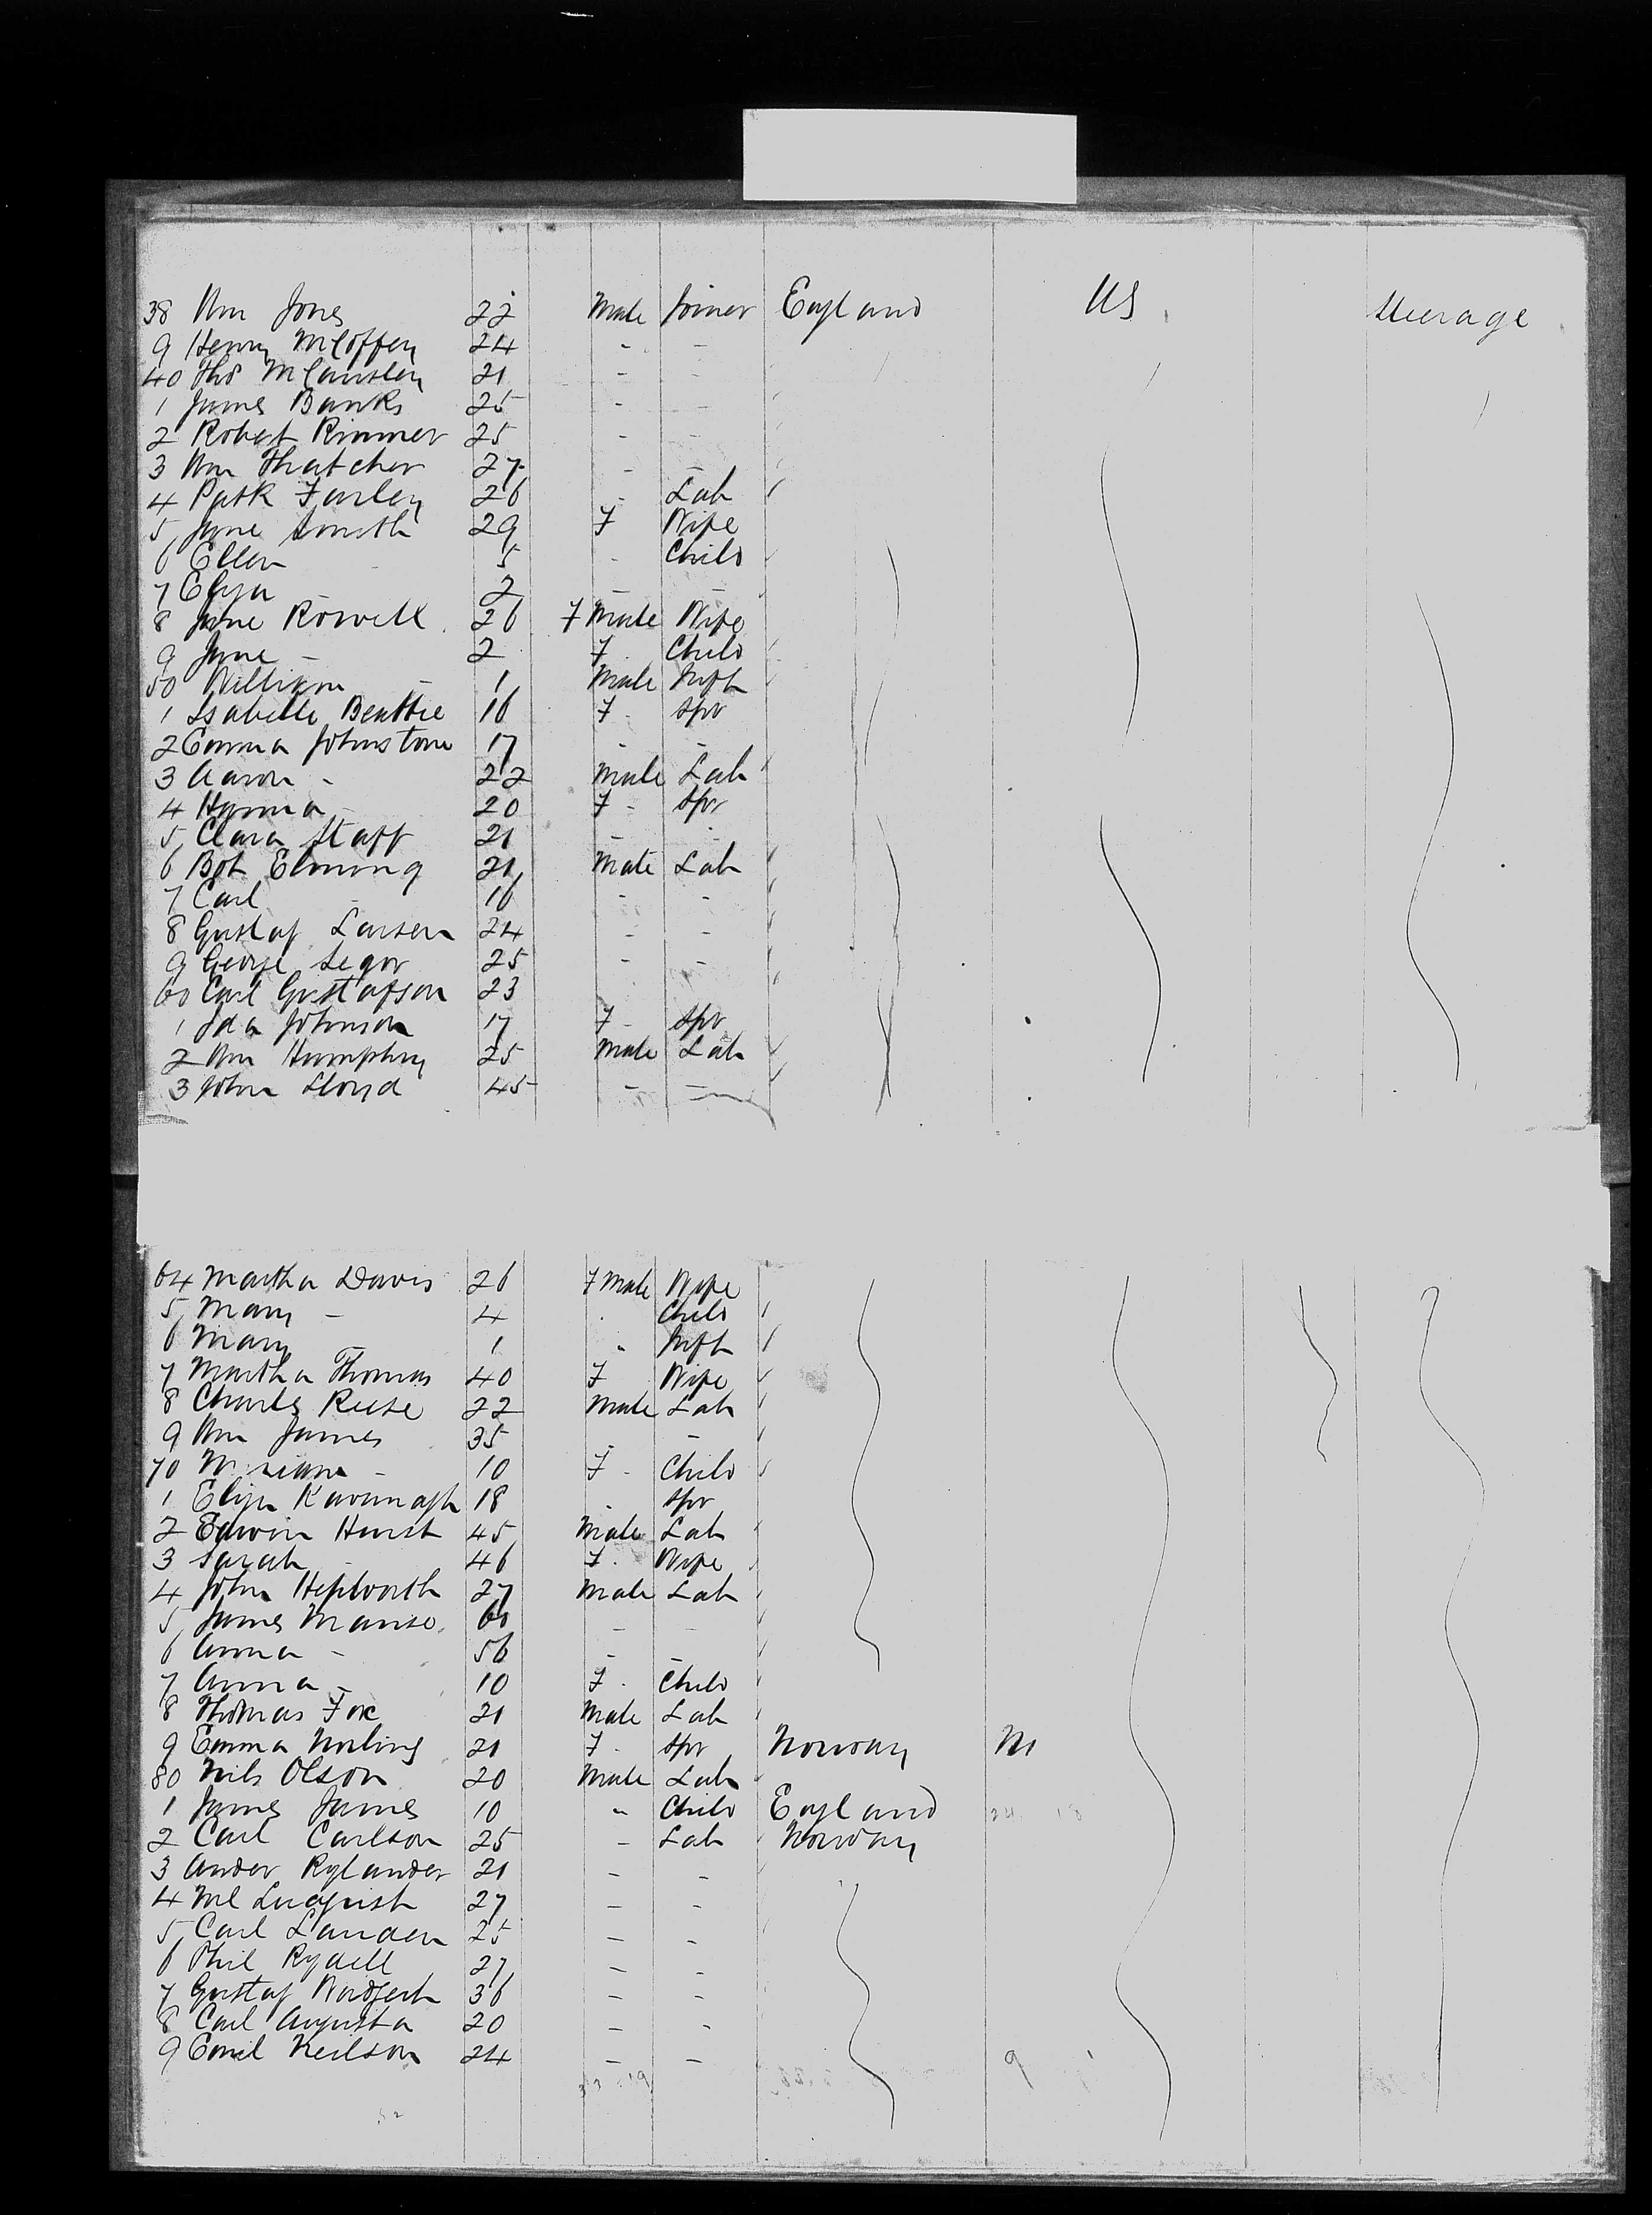 38 Wm Jones 22 Male Joiner England US Steerage
9 Henry McCoffery 24 - -
40 Thos McCauslen 21 - -
1 James Banks 25 - -
2 Robert Rimmer 25 - -
3 Wm Thatcher 27 - -
4 Patk Farley 26 - Lab
5 Jane Smith 29 F Wife
6 Ellen 5 - Child
7 Eliza - 2 -
8 Jane Rowell 26 F Male Wife
9 Jane - 2 F Child
50 William - 1 Male Inft
1 Isabella Beattie 16 F Spr
2 Emma Johnstone 17 - -
3 Aaron - 22 Male Lab
4 Hanna - 20 F - Spr
5 Clara Staff 21 - -
6 Bot Elming 21 Male Lab
7 Carl - 16 - -
8 Gustaf Larsen 24 - -
9 George Segor 25 - -
60 Carl Gustafson 23
1 Ida Johnson 17 F - Spr
2 Wm Humphry 25 Male Lab
3 John Lloyd 45 - -
64 Martha Davis 26 F Male Wife
5 Mary - 4 - Child
6 Mary - 1 - Inft
7 Martha Thomas 40 F Wife
8 Charles Reese 22 Male Lab
9 Wm James 35 - -
70 Miriam - 10 F - Child
1 Eliza Kavanagh 18 - Spr
2 Edwin Hurst 45 Male Lab
3 Sarah - 46 F - Wife
4 John Hepworth 27 Male Lab
5 James Manso 60 - -
6 Anna - 56 - -
7 Anna - 10 F - Child
8 Thomas Fox 21 Male Lab
9 Emma Norling 21 F - Spr Norway
80 Nils Olson 20 Male Lab
1 James James 10 " Child England
2 Carl Carlson 25 - Lab Norway
3 Ander Rylander 21 - -
4 Ml Luqvist 27 - -
5 Carl Landen 25 - -
6 Phil Rydell 27 - -
7 Gustaf 36 - -
8 Carl Augusta 20 - -
9 Emil Neilson 24 - - 9